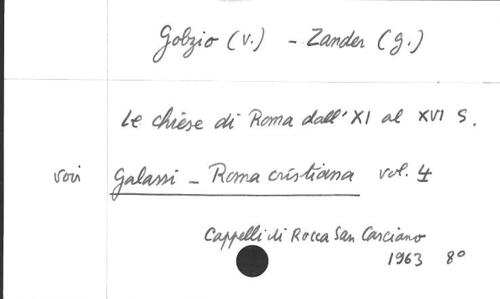 Golzio (V.) - Zander (G.)
Le chiese di Roma dall'XI al XVI S.
voir Galassi - Roma cristiana vol. 4
Cappelli di Rocca San Casciano
1963 8°